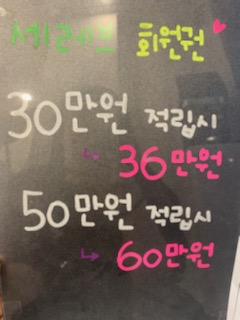 세레브 회원권
30만원 적립시
↳ 36만원
50만원 적립시
↳ 60만원